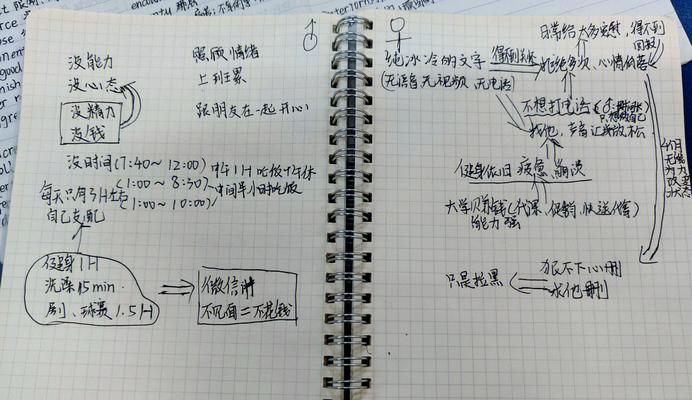 没能力
没心态
没精力
没钱
照顾情绪
上班累
跟朋友在一起开心
没时间(7:40~12:00)中午1H吃饭+午休
(1:00~8:30)中间半小时吃饭
每天只有3H左右(1:00~10:00)
自己支配
健身1H
洗澡15min.
剧、球赛1.5H
微信
不见面=不花钱
日常给太多
得不到
回教
纯冰冷的文字
得不到
(无语音无视频 无电话)
拒绝多次、心情
不想打电话
只想做自己
找他,
放松
4个月
无能
为力
改变
状态
健身依旧 疲惫
大学贝兼钱(代课、促销、快递)
能力强
只是拉黑
狠不下心删
求他 删